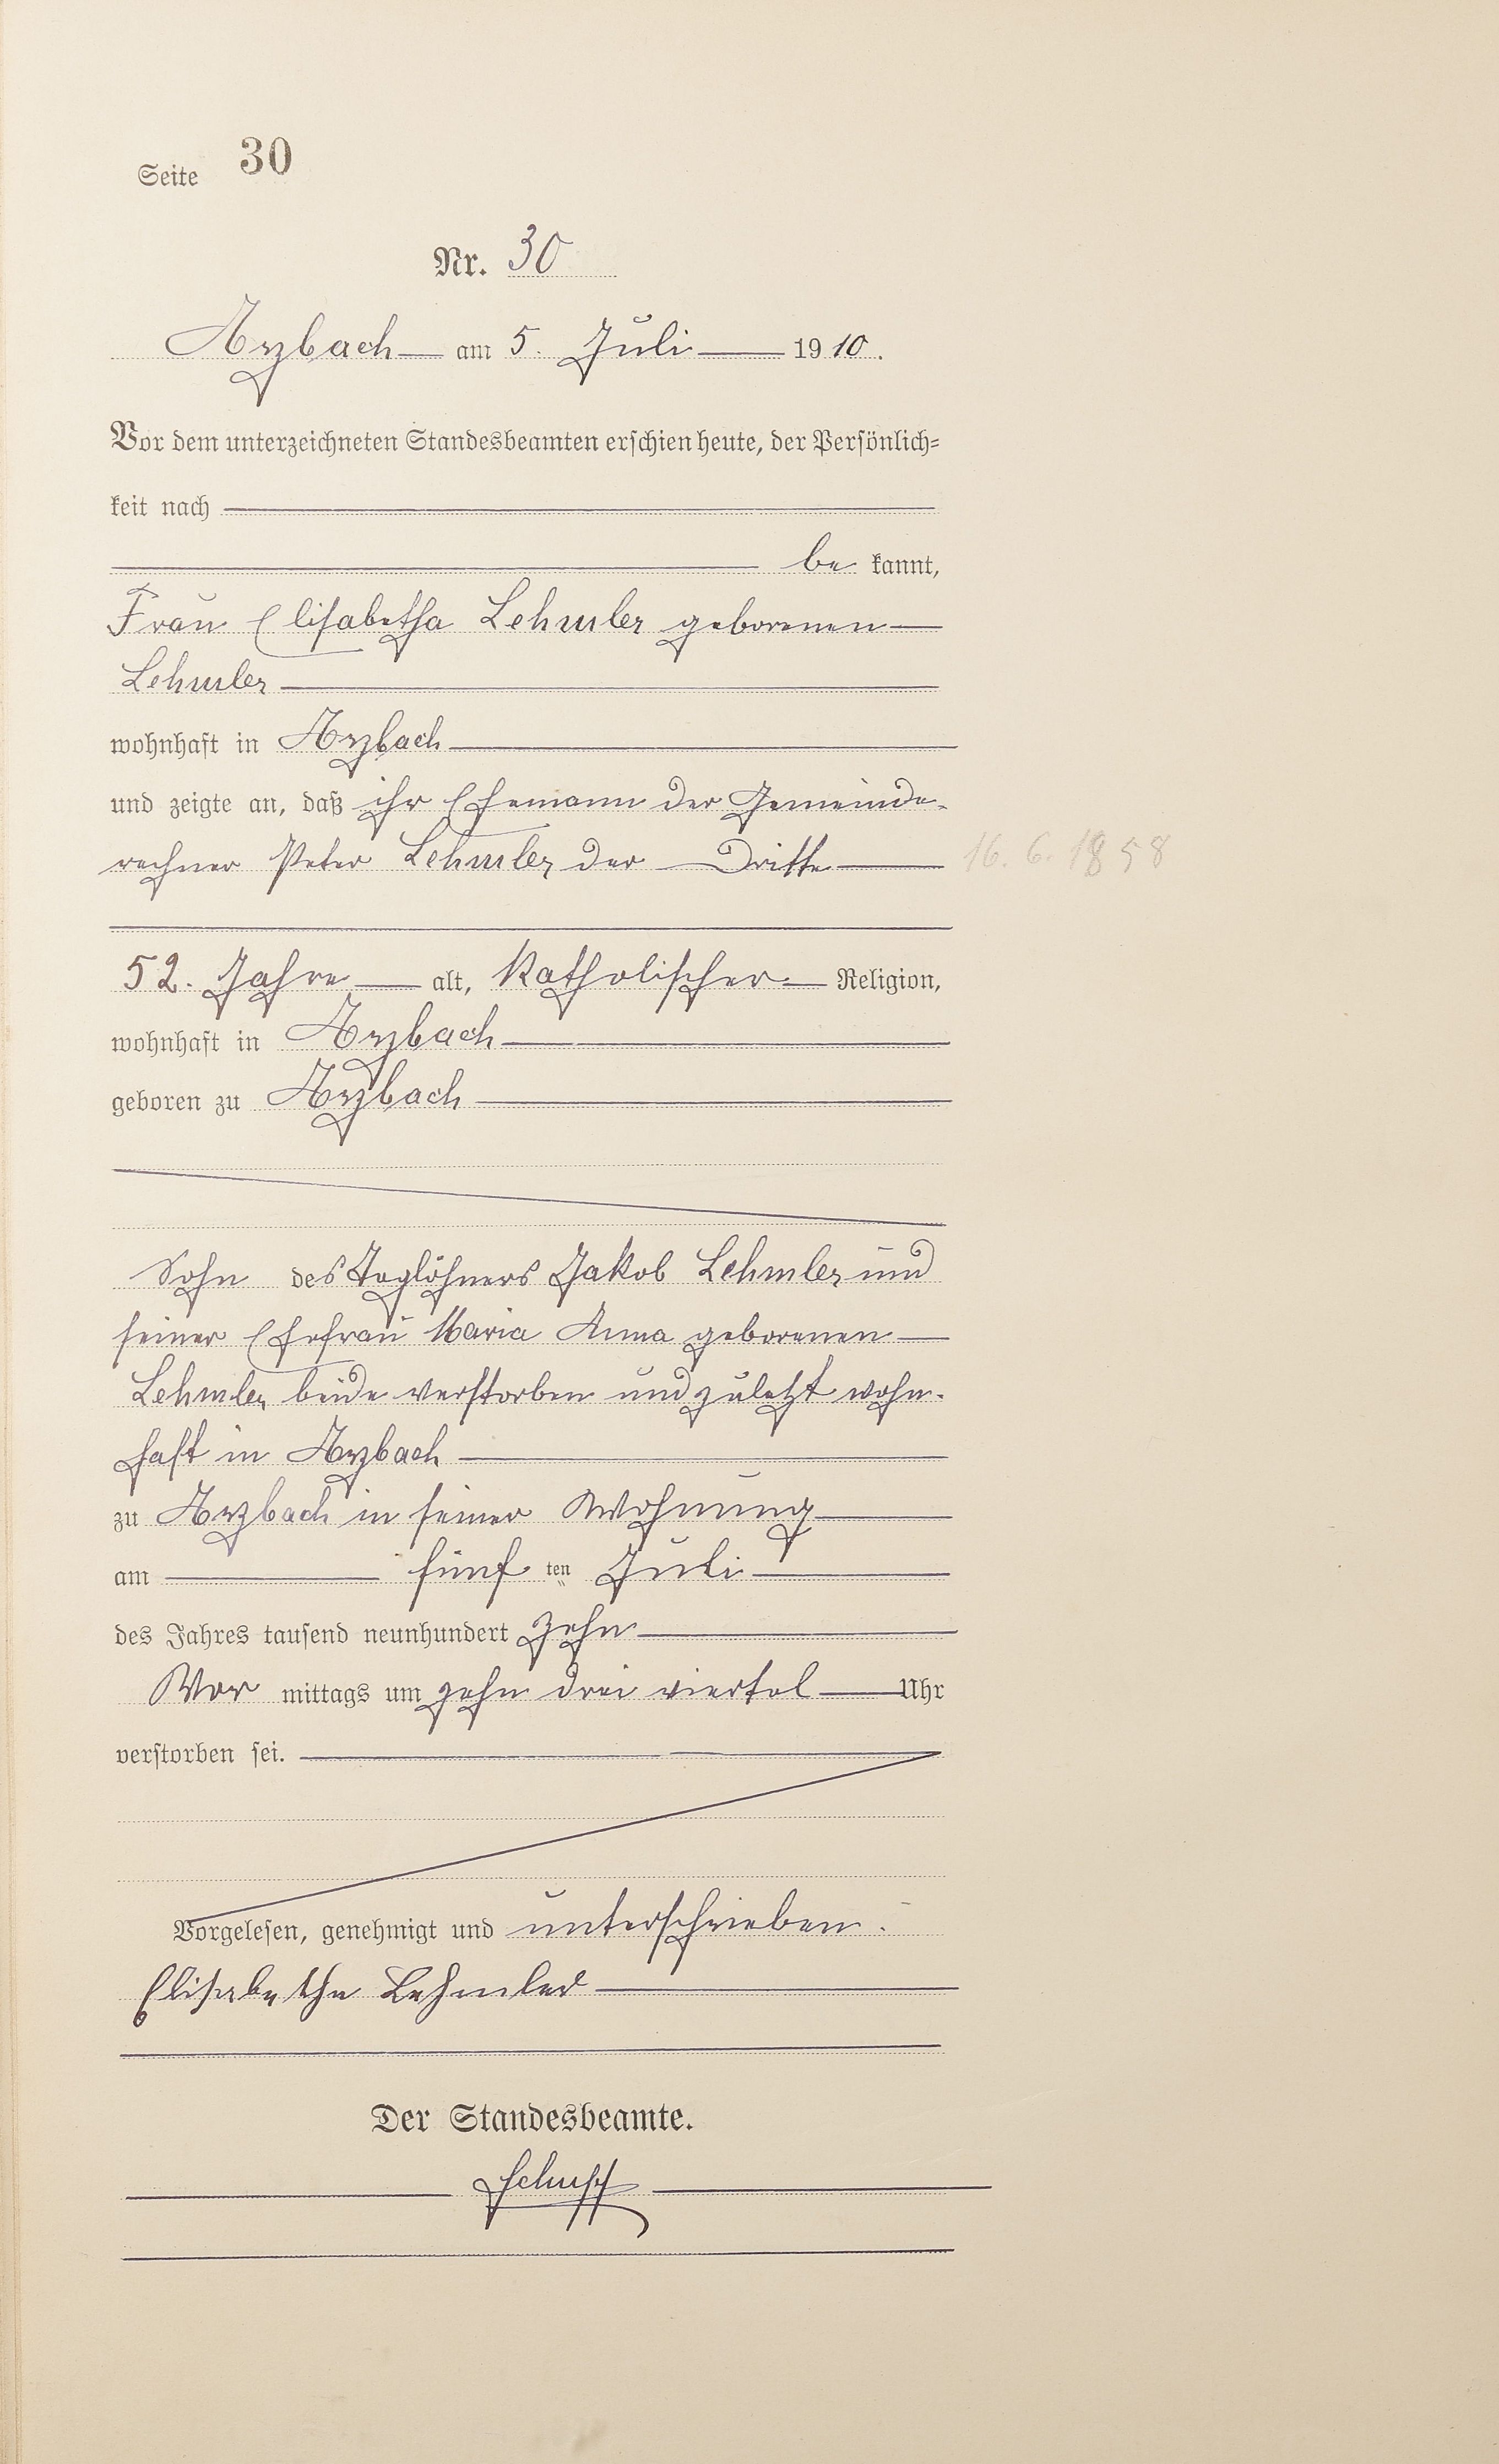 Seite 30
Nr. 30
Arzbach am 5. Juli 1910.
Vor dem unterzeichneten Standesbeamten erschien heute, der Persönlich=
keit nach
be kannt,
Frau Elisabetha Lehmler geborenen
Lehmler
wohnhaft in Arzbach
und zeigte an, daß ihr Ehemann der Gemeinde-
rechner Peter Lehmler der Dritte
16. 6. 1858
52. Jahre alt, Katholischer Religion,
wohnhaft in Arzbach
geboren zu Arzbach
Sohn des Taglöhners Jakob Lehmler und
seiner Ehefrau Maria Anna geborenen
Lehmler beide verstorben und zuletzt wohn-
haft in Arzbach
zu Arzbach in seiner Wohnung
am fünf ten Juli
des Jahres tausend neunhundert zehn
Vor mittags um zehn drei viertel Uhr
verstorben sei.
Vorgelesen, genehmigt und unterschrieben.
Elisabetha Lehmler
Der Standesbeamte.